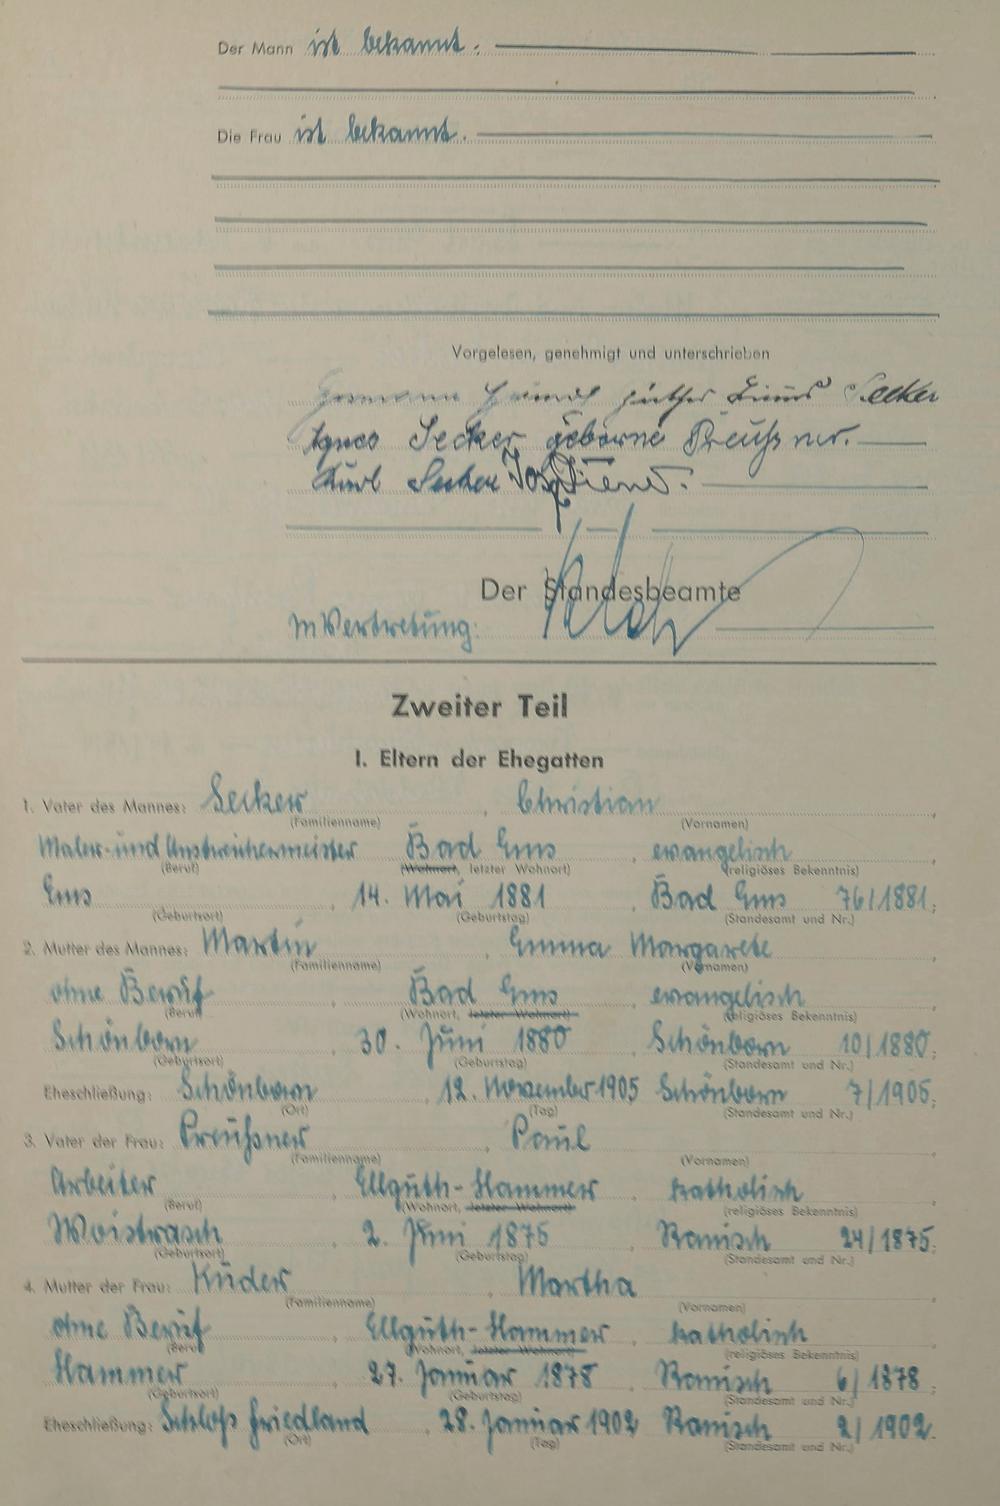 Der Mann ist bekannt.
Die Frau ist bekannt.
Vorgelesen, genehmigt und unterschrieben
Hermann Secker
Agnes Secker geborne Preußner.
Karl Secker
Der Standesbeamte
In Vertretung:
Zweiter Teil
I. Eltern der Ehegatten
1. Vater des Mannes: Secker, Christian
(Familienname) (Vornamen)
Maler- und Anstreichermeister, Bad Ems, evangelisch,
(Beruf) (Wohnort, letzter Wohnort) (religiöses Bekenntnis)
Ems, 14. Mai 1881, Bad Ems 76/1881;
(Geburtsort) (Geburtstag) (Standesamt und Nr.)
2. Mutter des Mannes: Martin, Emma Margarete
(Familienname) (Vornamen)
ohne Beruf, Bad Ems, evangelisch,
(Beruf) (Wohnort, letzter Wohnort) (religiöses Bekenntnis)
Schönborn, 30. Juni 1880, Schönborn 10/1880;
(Geburtsort) (Geburtstag) (Standesamt und Nr.)
Eheschließung: Schönborn, 12. November 1905 Schönborn 7/1905;
(Ort) (Tag) (Standesamt und Nr.)
3. Vater der Frau: Preußner, Paul
(Familienname) (Vornamen)
Arbeiter, Ellguth-Hammer, katholisch,
(Beruf) (Wohnort, letzter Wohnort) (religiöses Bekenntnis)
Woistrasch, 2. Juni 1875, 24/1875;
(Geburtsort) (Geburtstag) (Standesamt und Nr.)
4. Mutter der Frau: Kuder, Martha
(Familienname) (Vornamen)
ohne Beruf, Ellguth-Hammer, katholisch,
(Beruf) (Wohnort, letzter Wohnort) (religiöses Bekenntnis)
Hammer, 27. Januar 1878, 6/1878;
(Geburtsort) (Geburtstag) (Standesamt und Nr.)
Eheschließung: Schloß Friedland, 28. Januar 1902 2/1902.
(Ort) (Tag) (Standesamt und Nr.)